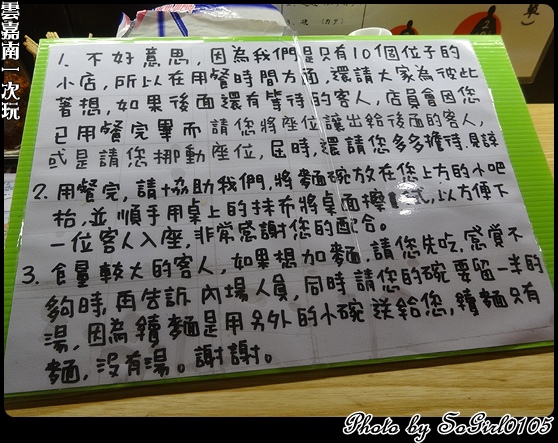 雲嘉南一次玩
1. 不好意思，因為我們是只有10個位子的
小店，所以在用餐時間方面，還請大家為彼此
著想，如果後面還有等待的客人，店員會因您
已用餐完畢而請您將座位讓出給後面的客人，
或是請您挪動座位，屆時，還請您多多擔待、見諒
2. 用餐完，請協助我們，將麵碗放在您上方的小吧
枱，並順手用桌上的抹布將桌面擦拭，以方便下
一位客人入座，非常感謝您的配合。
3. 食量較大的客人，如果想加麵，請您先吃，感覺不
夠時，再告訴內場人員，同時請您的碗要留一半的
湯，因為續麵是用另外的小碗送給您，續麵只有
麵，沒有湯。謝謝。
Photo by SoGirl0105